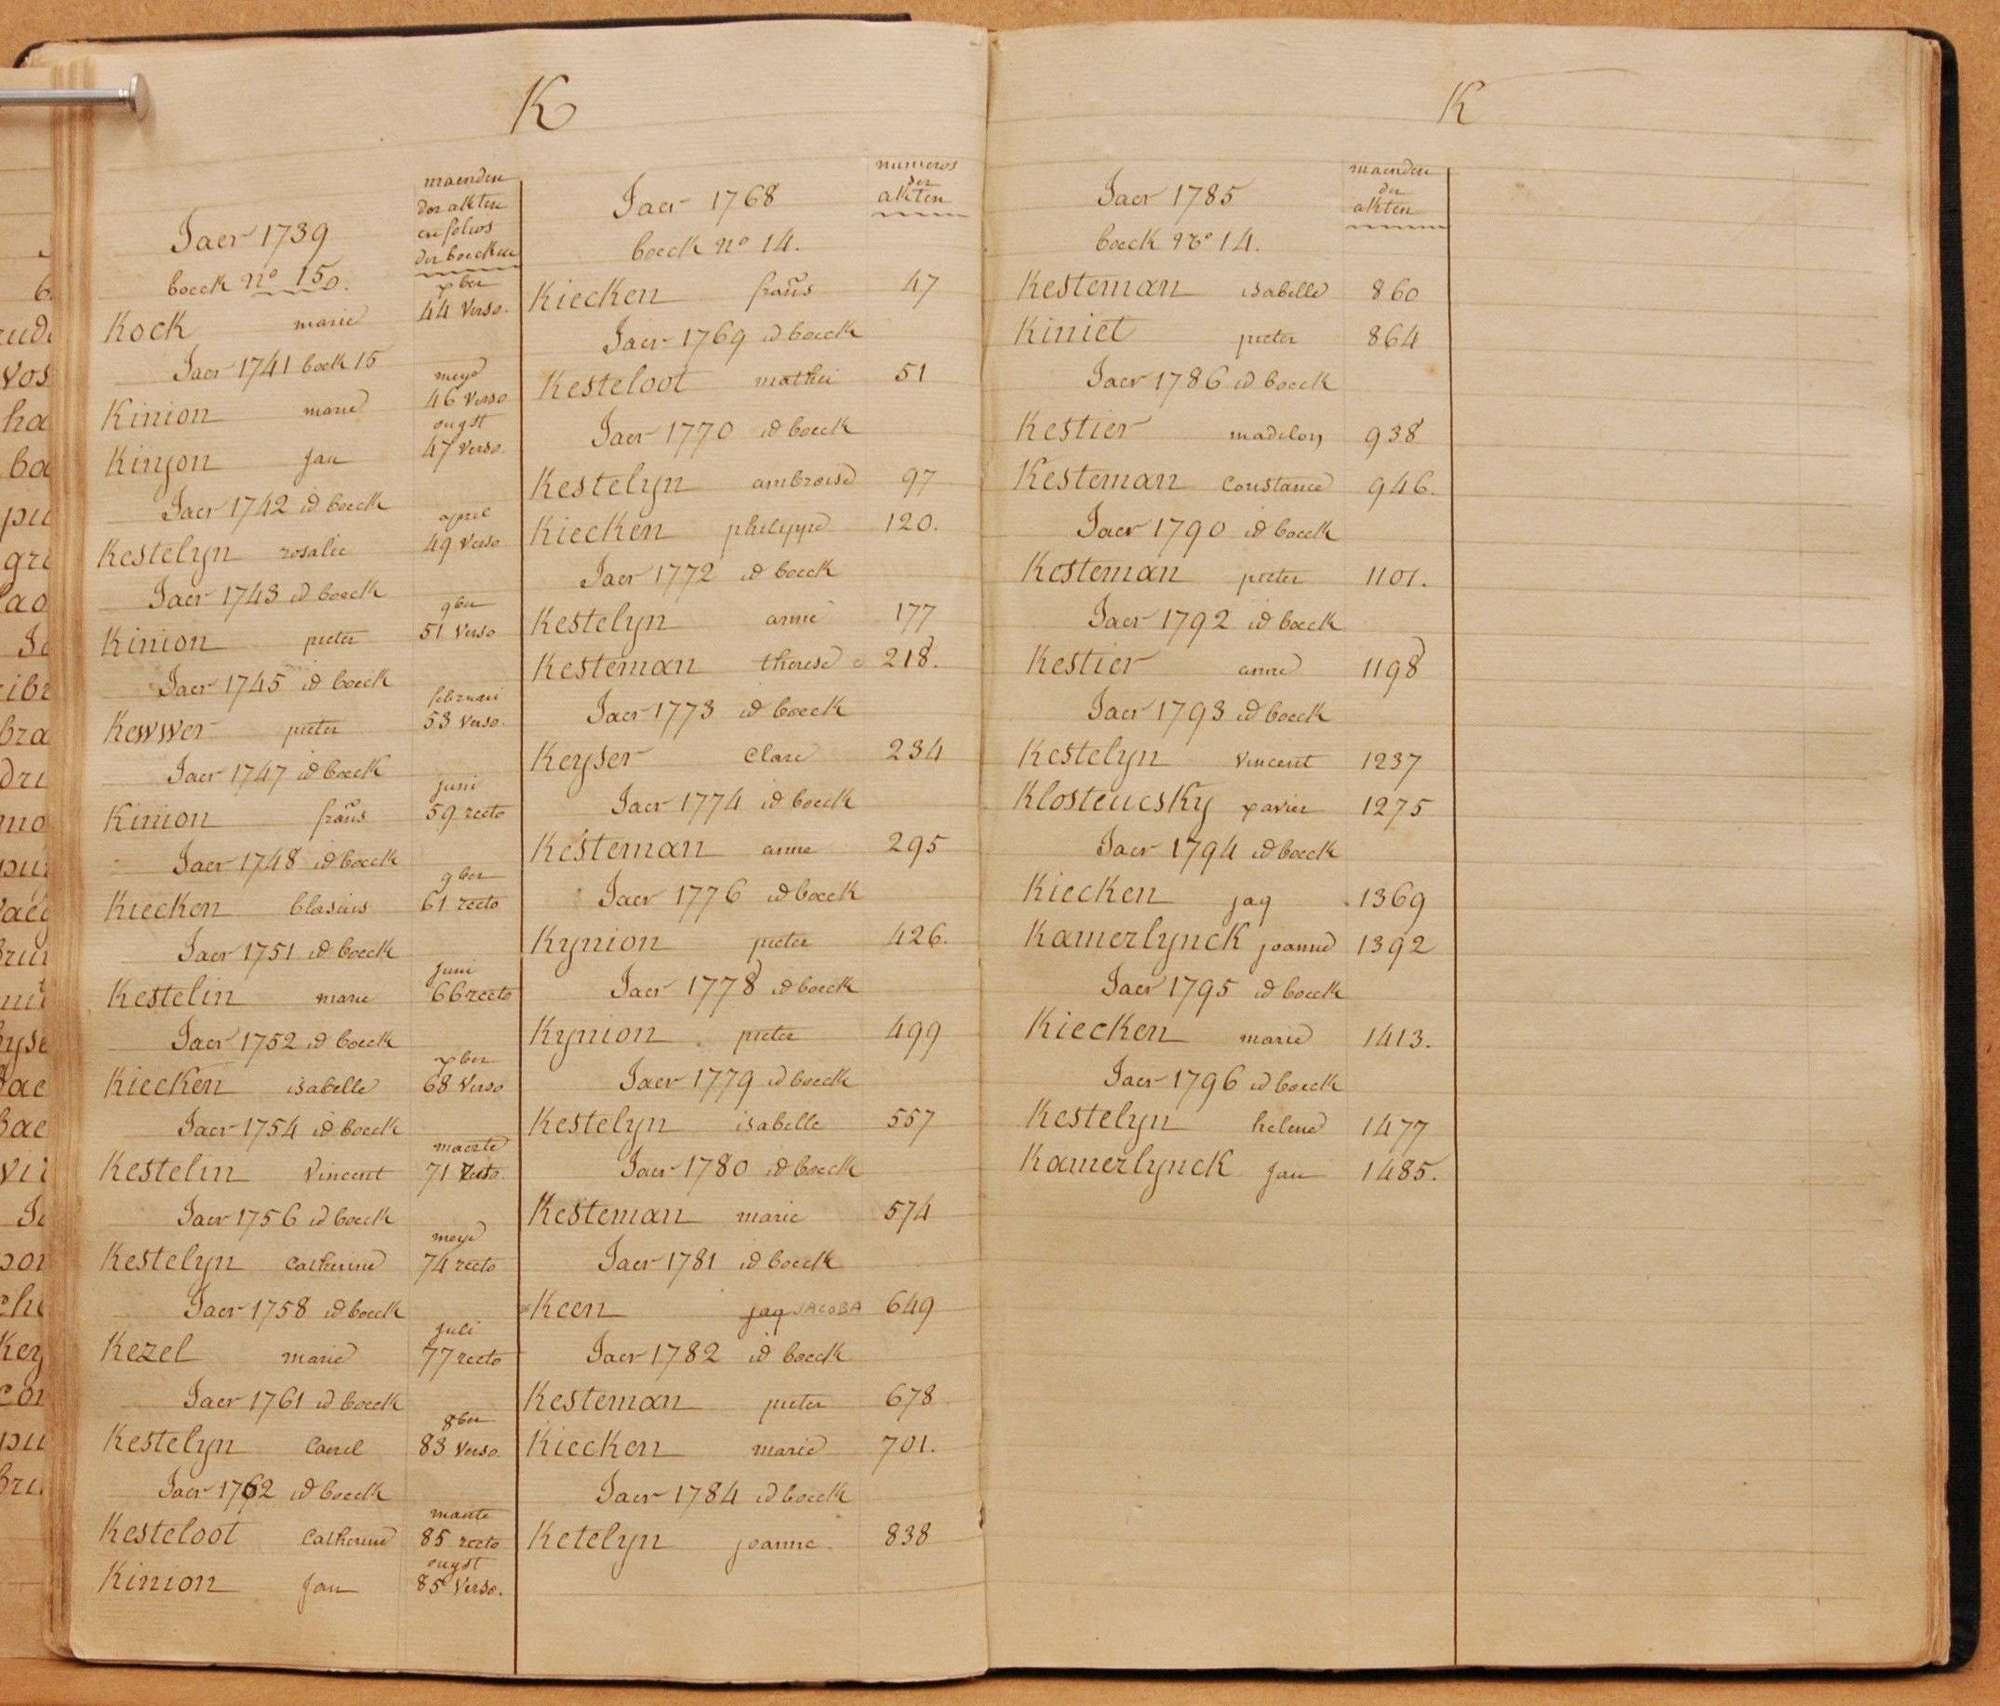 K
maenden
der akten
en folios
der boecken
Jaer 1739
boeck no 15.
xber
Kock marie 44 verso.
Jaer 1741 boek 15
meye
Kinion marie 46 verso
ougst
Kinyon Jan 47 verso.
Jaer 1742 id boeck
april
Kestelyn rosalie 49 verso
Jaer 1743 id boeck
9ber
Kinion pieter 51 verso
Jaer 1745 id boeck
februari
Kewwer pieter 53 verso.
Jaer 1747 id boeck
juni
Kinion frans 59 recto
Jaer 1748 id boeck
9ber
Kiecken blasius 61 recto
Jaer 1751 id boeck
juni
Kestelin marie 66 recto
Jaer 1752 id boeck
xber
Kiecken isabelle 68 verso
Jaer 1754 id boeck
maerte
Kestelin Vincent 71 recto.
Jaer 1756 id boeck
meye
Kestelyn Catherine 74 recto
Jaer 1758 id boeck
juli
Kezel marie 77 recto
Jaer 1761 id boeck
8ber
Kestelyn Carel 83 verso.
Jaer 1762 id boeck
maerte
Kesteloot Catherine 85 recto
ougst
Kinion Jan 85 verso.
numeros
der
akten
Jaer 1768
boeck no 14.
Kiecken frans 47
Jaer 1769 id boeck
Kesteloot mathei 51
Jaer 1770 id boeck
Kestelyn ambroise 97
Kiecken philippe 120.
Jaer 1772 id boeck
Kestelyn anne 177
Kesteman therese 218.
Jaer 1773 id boeck
Keyser Clare 234
Jaer 1774 id boeck
Kesteman anne 295
Jaer 1776 id boeck
Kynion pieter 426.
Jaer 1778 id boeck
Kynion pieter 499
Jaer 1779 id boeck
Kestelyn isabelle 557
Jaer 1780 id boeck
Kesteman marie 574
Jaer 1781 id boeck
Keen jaq JACOBA 649
Jaer 1782 id boeck
Kesteman pieter 678
Kiecken marie 701.
Jaer 1784 id boeck
Ketelyn joanne 838
K
maenden
der
akten
Jaer 1785
boeck No 14.
Kesteman isabelle 860
Kiniet pieter 864
Jaer 1786 id boeck
Kestier madelon 938
Kesteman Constance 946.
Jaer 1790 id boeck
Kosteman pieter 1101.
Jaer 1792 id boeck
Kestier anne 1198
Jaer 1793 id boeck
Kestelyn Vincent 1237
Klosteucsky xavier 1275
Jaer 1794 id boeck
Kiecken jaq 1369
Kamerlynck joanne 1392
Jaer 1795 id boeck
Kiecken marie 1413.
Jaer 1796 id boeck
Kestelyn helene 1477
Kamerlynck Jan 1485.